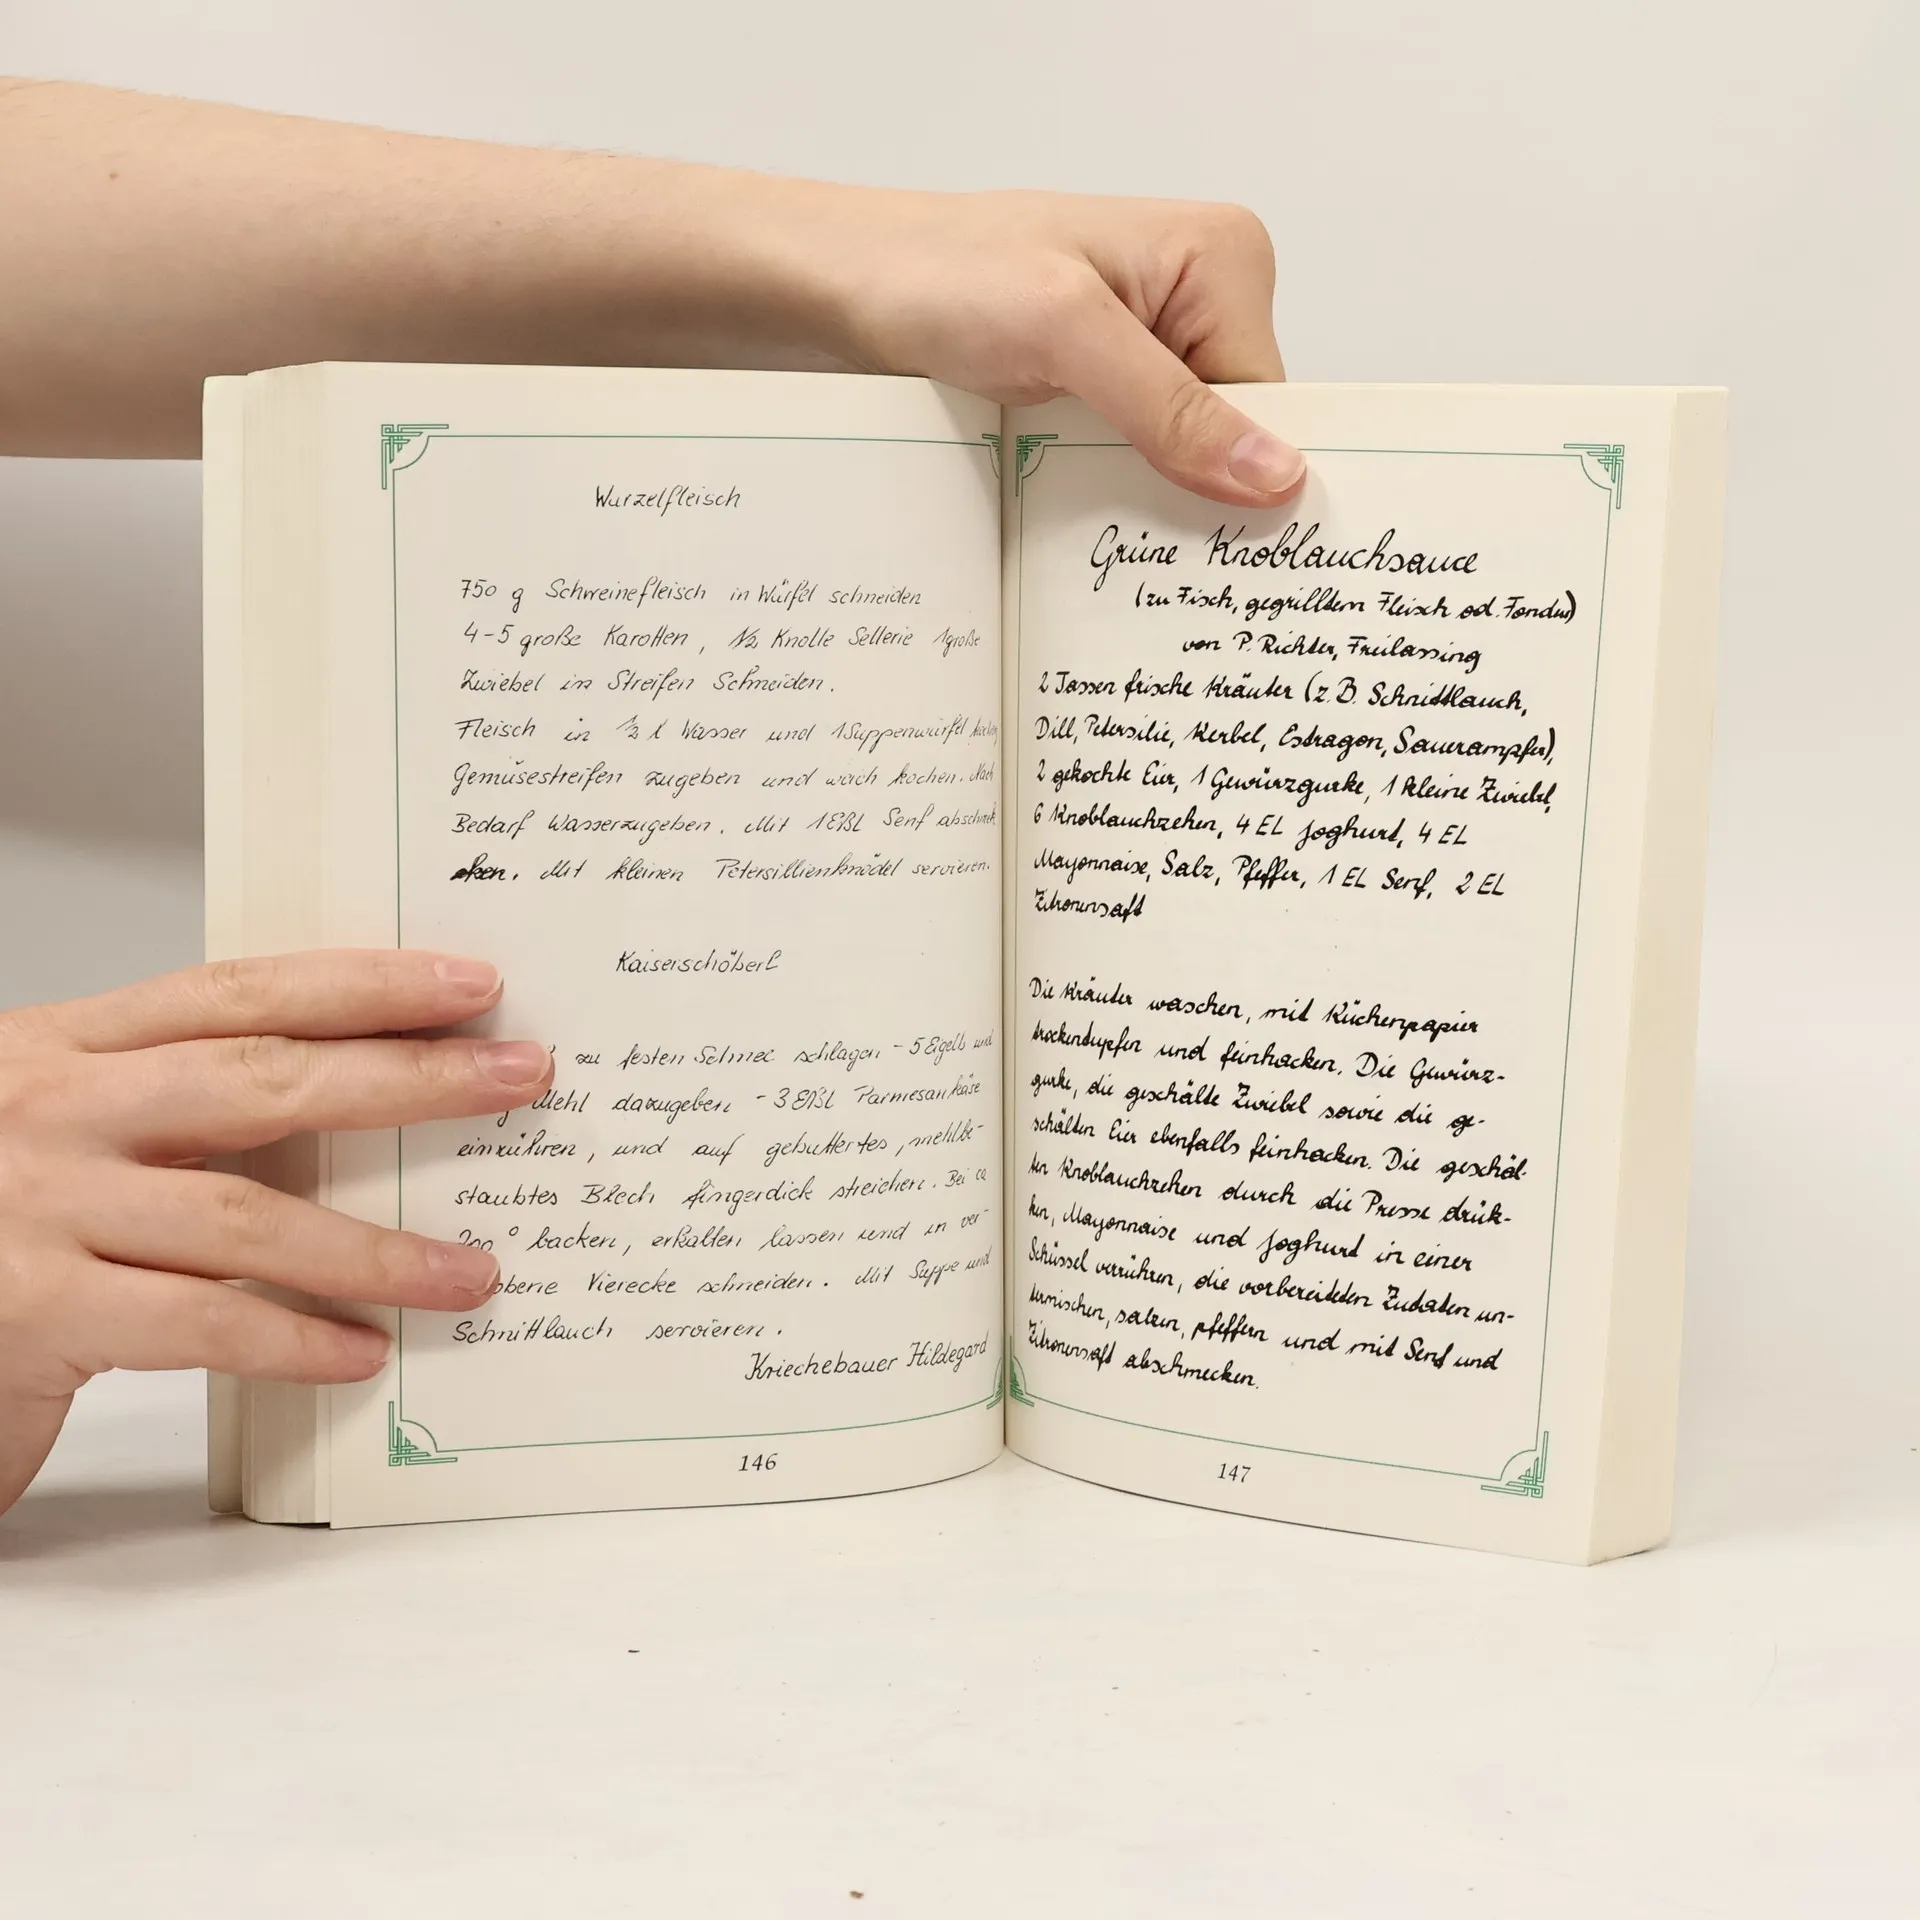 Wurzelfleisch
750 g Schweinefleisch in Würfel schneiden
4-5 große Karotten, 1/2 Knolle Sellerie 1 große
Zwiebel in Streifen Schneiden.
Fleisch in 1/2 l Wasser und 1 Suppenwürfel kochen
Gemüsestreifen zugeben und weich kochen. Nach
Bedarf Wasserzugeben. Mit 1 Eßl Senf abschmek
cken. Mit kleinen Petersillienknödel servieren.
Kaiserschöberl
zu festen Schnee schlagen - 5 Eigelb und
Mehl dazugeben - 3 Eßl Parmesankäse
einrühren, und auf gebuttertes, mehlbe-
staubtes Blech fingerdick streichen. Bei ca
200° backen, erkalten lassen und in ver-
Vierecke schneiden. Mit Suppe und
Schnittlauch servieren.
Kriechebauer Hildegard
146
Grüne Knoblauchsauce
(zu Fisch, gegrilltem Fleisch od. Fondue)
von P. Richter, Freilassing
2 Tassen frische Kräuter (z.B. Schnittlauch,
Dill, Petersilie, Kerbel, Estragon, Sauerampfer),
2 gekochte Eier, 1 Gewürzgurke, 1 kleine Zwiebel,
6 Knoblauchzehen, 4 EL Joghurt, 4 EL
Mayonnaise, Salz, Pfeffer, 1 EL Senf, 2 EL
Zitronensaft
Die Kräuter waschen, mit Küchenpapier
trockentupfen und feinhacken. Die Gewürz-
gurke, die geschälte Zwiebel sowie die ge-
schälten Eier ebenfalls feinhacken. Die geschäl-
ten Knoblauchzehen durch die Presse drük-
ken, Mayonnaise und Joghurt in einer
Schüssel verrühren, die vorbereiteten Zutaten un-
termischen, salzen, pfeffern und mit Senf und
Zitronensaft abschmecken.
147